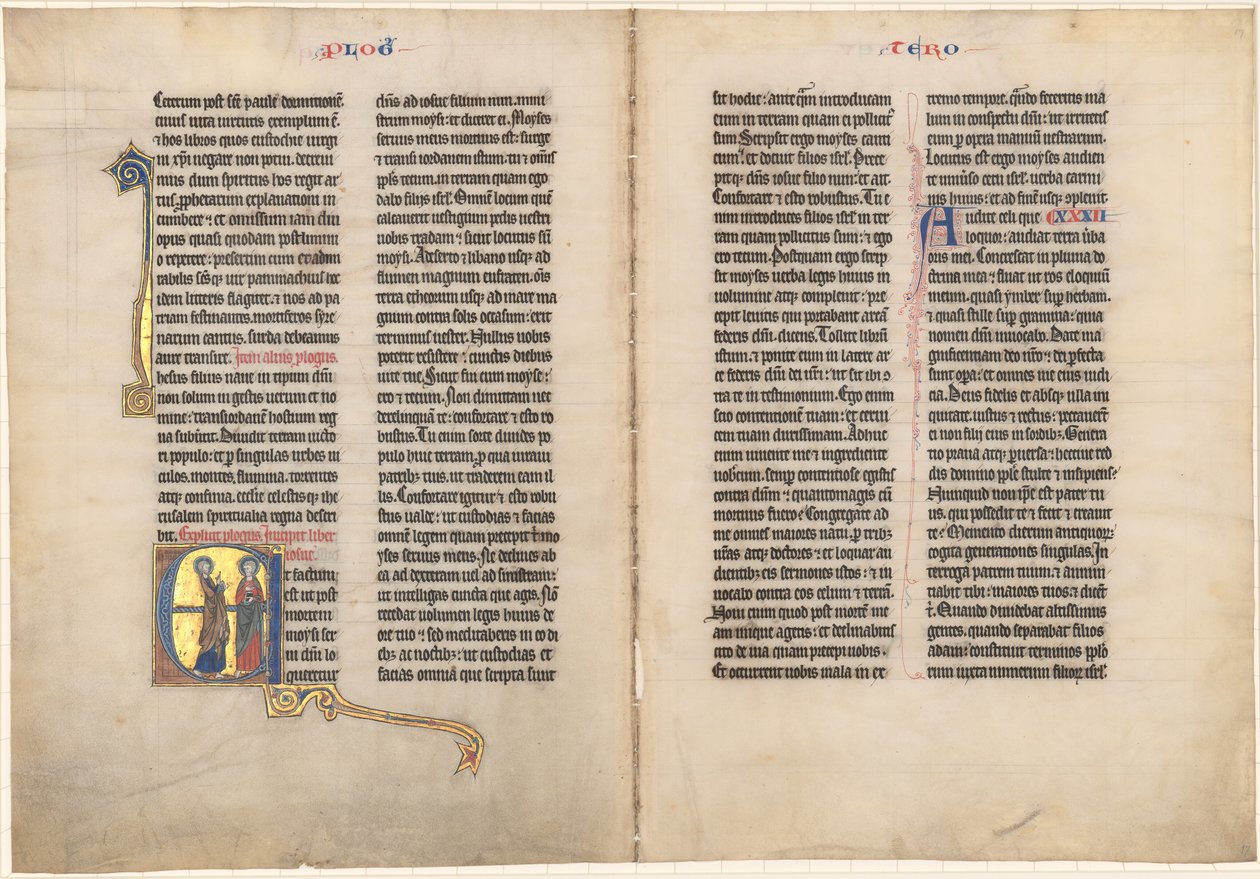 PLOG
Ceterum post scẽ paule dormitionẽ.
cuius uita uirtutis exemplum ẽ.
⁊ hos libros quos eustochie uirgi
ni xp̃i negare non potui. decreui
mus dum spiritus hos regit ar
tus. ꝓphetarum explanationi in
cumbere ⁊ et omissum iam diu
opus quasi quodam postliminii
o repetere: presertim cum et admi
rabilis sc̃sq; uir pammachius hec
idem litteris flagitet. ⁊ nos ad pa
triam festinantes. mortiferos syre
narum cantus. surda debeamus
aure transire. Item alius ꝓlogus.
Ihesus filius naue in tipum dñi
non solum in gestis uerum et no
mine: transiordanẽ hostium reg
na subuertit. Diuidit terram uicto
ri populo: et ꝑ singulas urbes ui
culos. montes. flumina. torrentes
atq; confinia. ecclie celestisq; ihe
rusalem spiritualia regna descri
bit. Explicit ꝓlogus. Incipit liber
iosue.
Et factum
est ut post
mortem
moysi ser
ui dñi lo
queretur
dñs ad iosue filium nun. mini
strum moysi: et diceret ei. Moyses
seruus meus mortuus est: surge
⁊ transi iordanem istum. tu ⁊ oms̃
pp̃ls tecum. in terram quam ego
dabo filijs isrl̃. Omnẽ locum quẽ
calcauerit uestigium pedis uestri
uobis tradam: sicut locutus sũ
moysi. A deserto ⁊ libano usq; ad
flumen magnum eufraten. ois̃
terra etheorum usq; ad mare ma
gnum contra solis occasum: erit
terminus uester. Nullus uobis
poterit resistere: cunctis diebus
uite tue. Sicut fui cum moyse:
ero ⁊ tecum. Non dimittam nec
derelinquã te: confortare ⁊ esto ro
bustus. Tu enim sorte diuides po
pulo huic terram. ꝓ qua iuraui
patrib; tuis. ut traderem eam il
lis. Confortare igitur ⁊ esto robu
stus ualde: ut custodias ⁊ facias
omnẽ legem quam precepit t̾ mo
yses seruus meus. Ne declines ab
ea ad dexteram uel ad sinistram:
ut intelligas cuncta que agis. Nõ
recedat uolumen legis huius de
ore tuo: sed meditaberis in eo di
eb; ac noctib;: ut custodias et
facias omnia que scripta sunt
TERO
sit hodie: anteq̃m introducam
eum in terram quam ei pollicit᷒
sum. Scripsit ergo moyses canti
cum: et docuit filios isrl̃. Prece
pitq; dñs iosue filio nun: et ait.
Confortare ⁊ esto robustus. Tu e
nim introduces filios isrl̃ in ter
ram quam pollicitus sum: ⁊ ego
ero tecum. Postquam ergo scrip
sit moyses uerba legis huius in
uolumine atq; compleuit: pre
cepit leuitis qui portabant arcã
federis dñi. dicens. Tollite librũ
istum. ⁊ ponite eum in latere ar
ce federis dñi dei ur̃i: ut sit ibi ɔ
tra te in testimonium. Ego enim
scio contentionẽ tuam: et cerui
cem tuam durissimam. Adhuc
enim uiuente me ⁊ ingrediente
uobcũm. semꝑ contentiose egistis
contra dñm: quantomagis cũ
mortuus fuero? Congregate ad
me omnes maiores natu. ꝑ trib;
ur̃as atq; doctores: et loquar au
dientib; eis sermones istos: ⁊ in
uocabo contra eos celum ⁊ terrã.
Noui enim quod post mortẽ me
am inique agetis: et declinabitis
cito de uia quam precepi uobis.
Et occurrent uobis mala in ex
tremo tempore. q̃ndo feceritis ma
lum in conspectu dñi: ut irritetis
eum ꝑ opera manuũ uestrarum.
Locutus est ergo moyses audien
te uniũso cetu isrl̃. uerba carmi
nis huius: et ad finẽ usq; ꝯpleuit.
Audite celi que XXXII
loquor: audiat terra ũba
oris mei. Concrescat in pluuia do
ctrina mea: ⁊ fluat ut ros eloquiũ
meum. quasi ymber suꝑ herbam.
⁊ quasi stille suꝑ gramina: quia
nomen dñi inuocabo. Date ma
gnificentiam deo nr̃o: dei ꝑfecta
sunt oꝑa: et omnes uie eius iudi
cia. Deus fidelis et absq; ulla ini
quitate. iustus ⁊ rectus: peccauerũt
ei non filij eius in sordib;. Genera
tio praua atq; ꝑuersa: heccine red
dis domino pop̃le stulte ⁊ insipiens?
Numquid non ip̃e est pater tu
us. qui possedit te ⁊ fecit ⁊ creauit
te? Memento dierum antiquoꝝ:
cogita generationes singulas. In
terroga patrem tuum. ⁊ annun
tiabit tibi: maiores tuos. ⁊ dicẽt
t̾. Quando diuidebat altissimus
gentes. quando separabat filios
adam: constituit terminos pp̃lo
rum iuxta numerum filioꝝ isrl̃.